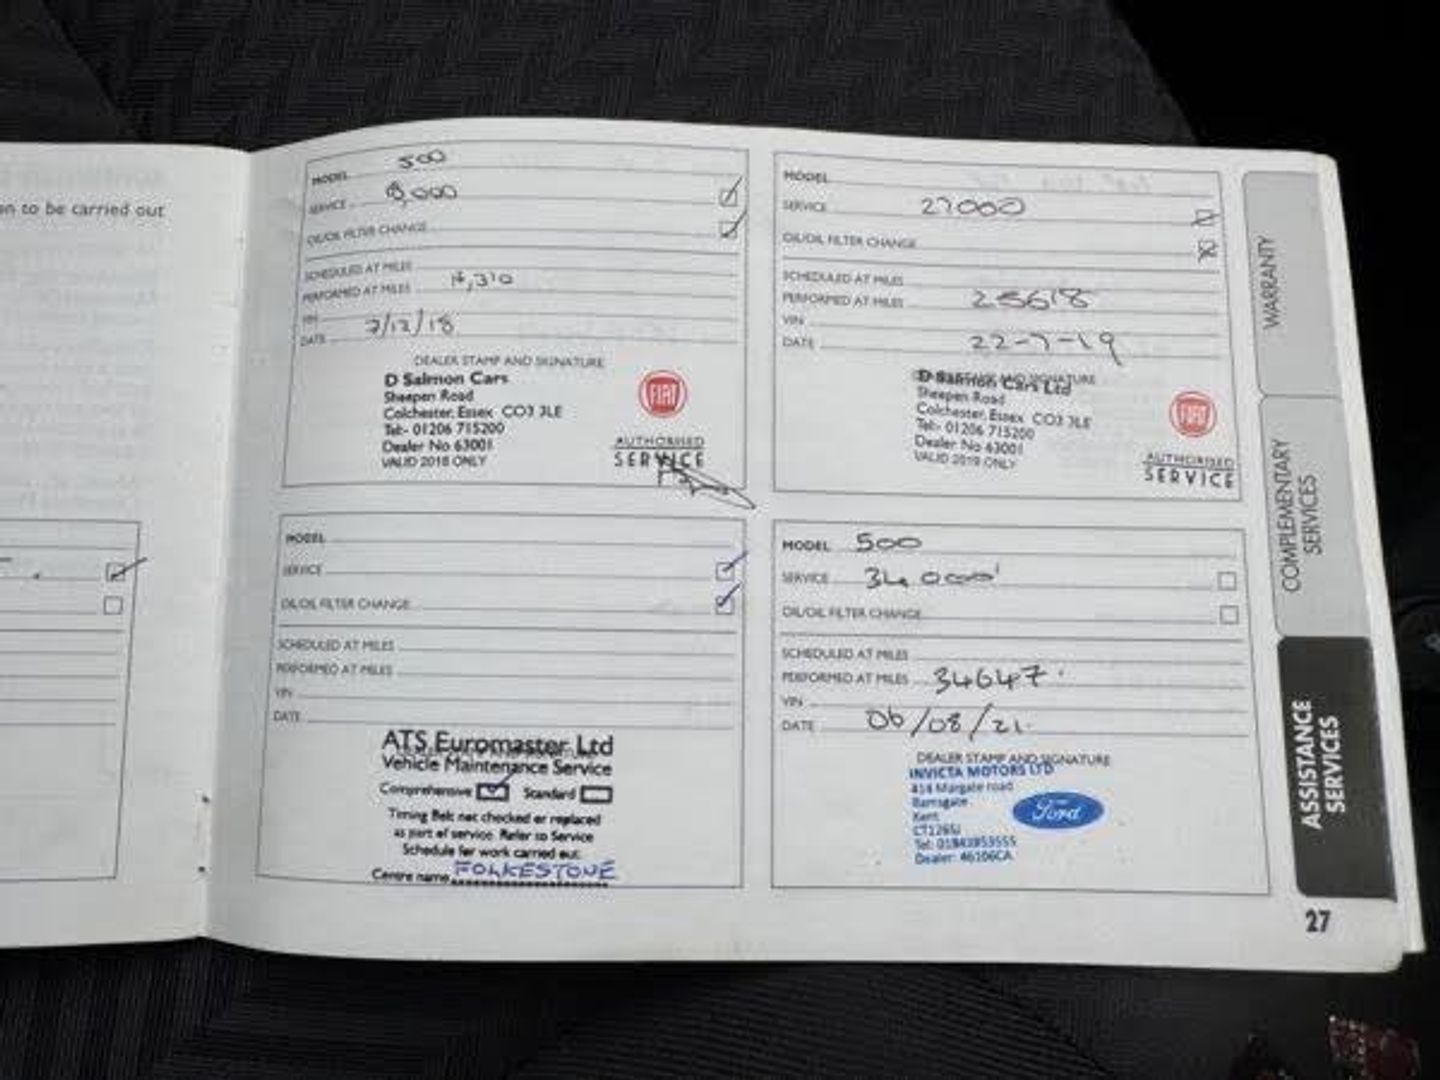 n to be carried out
MODEL 500
SERVICE ,000
OIL/OIL FILTER CHANGE
SCHEDULED AT MILES
PERFORMED AT MILES ,310
VIN
DATE 2/12/18
DEALER STAMP AND SIGNATURE
D Salmon Cars
Sheepen Road
Colchester, Essex CO3 3LE
Tel:- 01206 715200
Dealer No 63001
VALID 2018 ONLY
FIAT
AUTHORISED
SERVICE
MODEL
SERVICE 27000
OIL/OIL FILTER CHANGE
SCHEDULED AT MILES
PERFORMED AT MILES 25618
VIN
DATE 22-7-19
DEALER STAMP AND SIGNATURE
D Salmon Cars Ltd
Sheepen Road
Colchester, Essex CO3 3LE
Tel:- 01206 715200
Dealer No 63001
VALID 2019 ONLY
FIAT
AUTHORISED
SERVICE
MODEL
SERVICE
OIL/OIL FILTER CHANGE
SCHEDULED AT MILES
PERFORMED AT MILES
VIN
DATE
DEALER STAMP AND SIGNATURE
ATS Euromaster Ltd
Vehicle Maintenance Service
Comprehensive Standard
Timing Belt not checked or replaced
as part of service. Refer to Service
Schedule for work carried out
Centre name FOLKESTONE
MODEL 500
SERVICE 34000'
OIL/OIL FILTER CHANGE
SCHEDULED AT MILES
PERFORMED AT MILES 34647.
VIN
DATE 06/08/21.
DEALER STAMP AND SIGNATURE
INVICTA MOTORS LTD
Margate road
Ramsgate
Kent
Tel: 01843853555
Dealer: 46106CA
Ford
WARRANTY
COMPLEMENTARY
SERVICES
ASSISTANCE
SERVICES
27